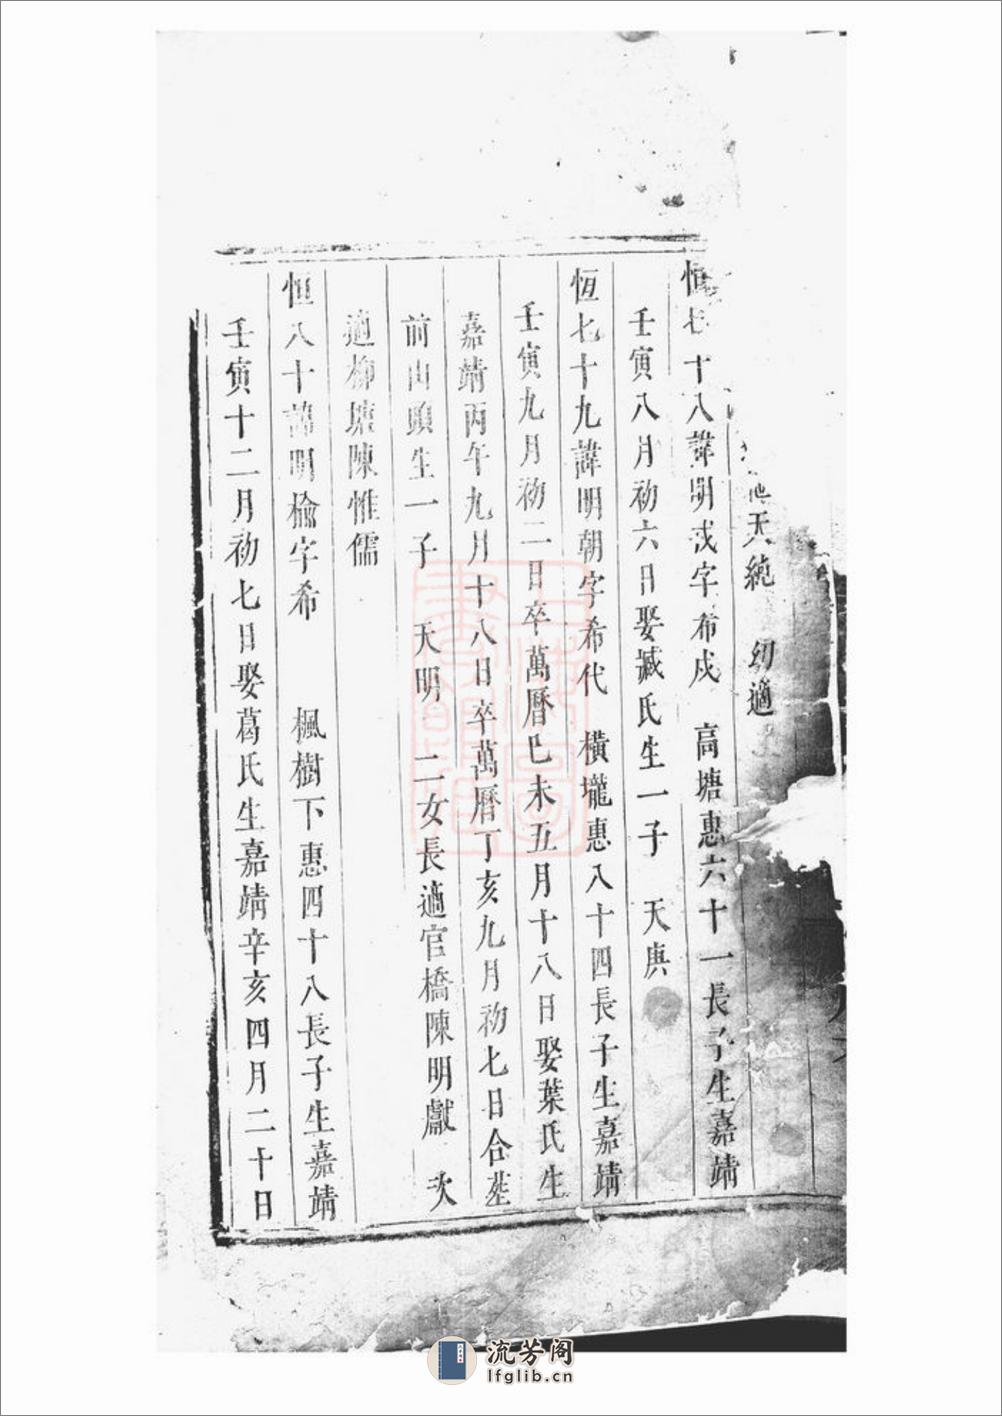 天純 幼適
恒七十八諱明戊字希戊 高塘惠六十一長子生嘉靖
壬寅八月初六日娶臧氏生一子 天庚
恆七十九諱明朝字希代 橫壠惠八十四長子生嘉靖
壬寅九月初二日卒萬曆己未五月十八日娶葉氏生
嘉靖丙午九月十八日卒萬曆丁亥九月初七日合塟
前山頭生一子 天明 二女長適官橋陳明獻 次
適柳塘陳惟儒
恒八十諱明榆字希 楓樹下惠四十八長子生嘉靖
壬寅十二月初七日娶葛氏生嘉靖辛亥四月二十日
流芳阁
lfglib.cn